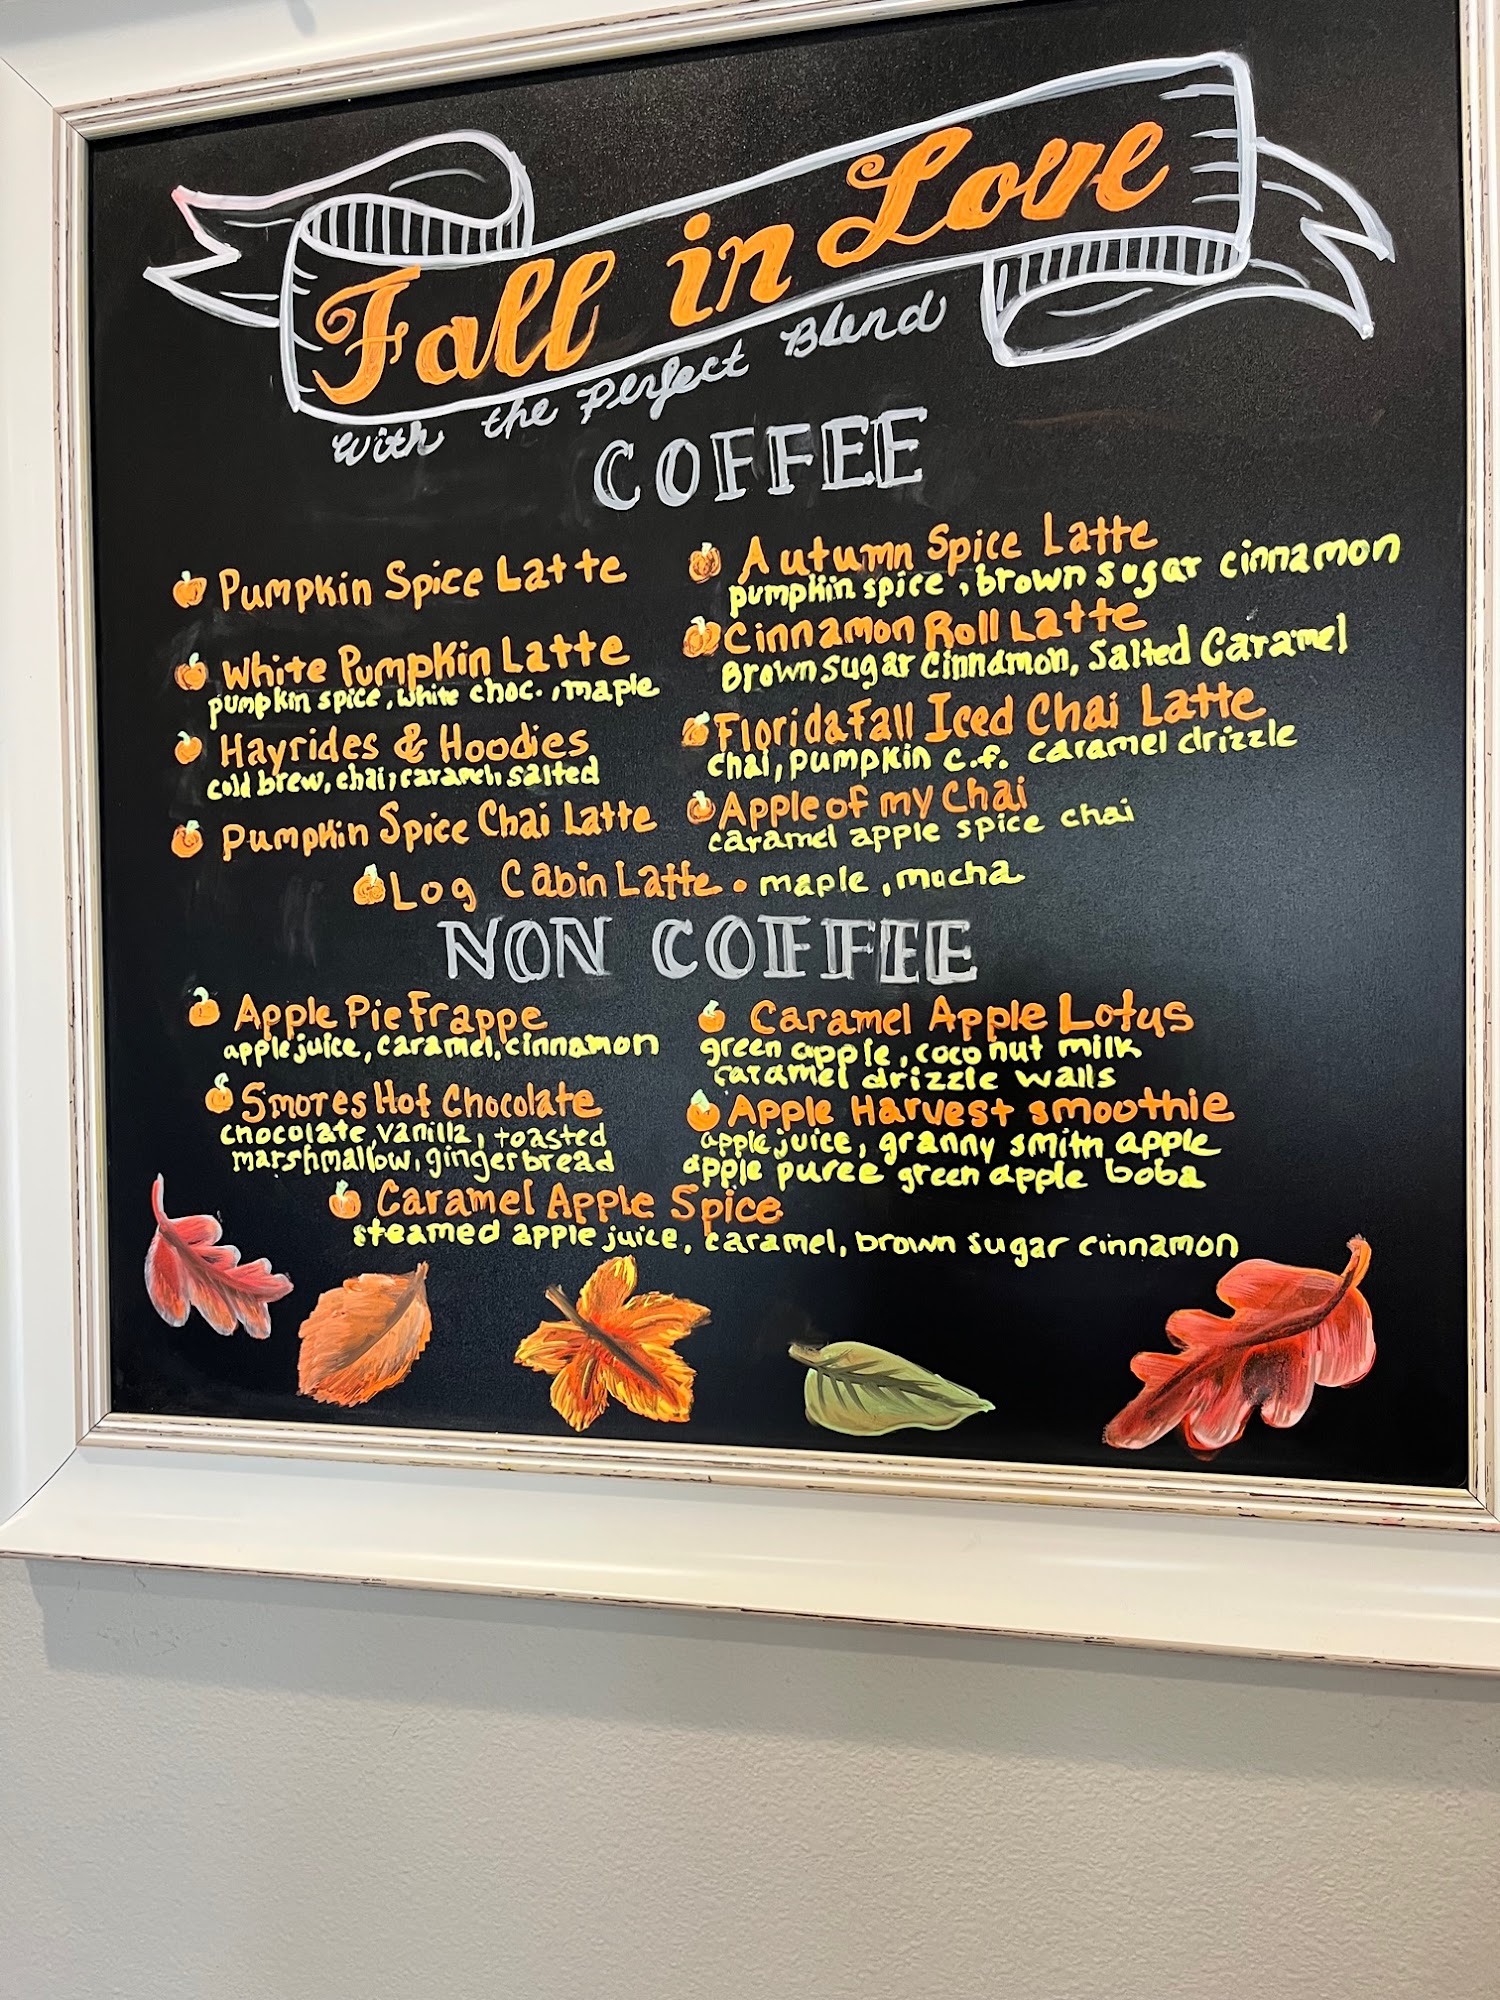 Fall in Love
With the Perfect Blend
COFFEE
Pumpkin Spice Latte
White Pumpkin Latte
pumpkin spice, white choc., maple
Hayrides & Hoodies
cold brew, chai, caramel, salted
Pumpkin Spice Chai Latte
Autumn Spice Latte
pumpkin spice, brown sugar cinnamon
Cinnamon Roll Latte
Brown sugar Cinnamon, Salted Caramel
Florida Fall Iced Chai Latte
chai, pumpkin c.f. caramel drizzle
Apple of my Chai
caramel apple spice chai
Log Cabin Latte • maple, mocha
NON COFFEE
Apple Pie Frappe
apple juice, caramel, cinnamon
Smores Hot Chocolate
chocolate, vanilla, toasted
marshmallow, gingerbread
Caramel Apple Lotus
green apple, coconut milk
caramel drizzle walls
Apple Harvest smoothie
apple juice, granny smith apple
apple puree green apple boba
Caramel Apple Spice
steamed apple juice, caramel, brown sugar cinnamon